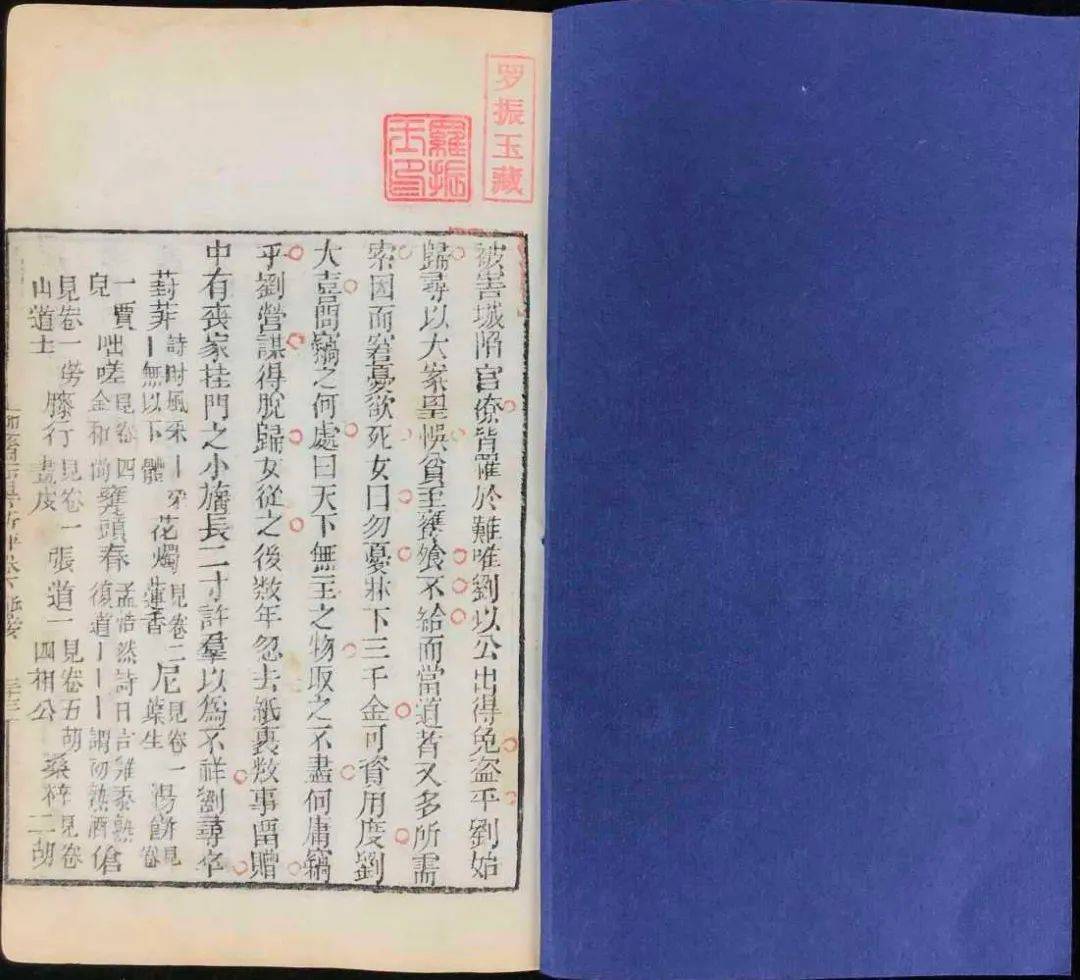 罗振玉藏
羅振玉印
被害城陷官僚皆罹於難唯劉以公出得免盜平劉始
歸尋以大案罣悞貧至饔飧不給而當道者又多所需
索因而窘憂欲死女曰勿憂牀下三千金可資用度劉
大喜問竊之何處曰天下無主之物取之不盡何庸竊
乎劉營謀得脫歸女從之後数年忽去紙裹数事留贈
中有喪家挂門之小旛長二寸許羣以為不祥劉尋卒
葑菲詩邶風采｜采｜無以下體 花燭見卷二蓮香 尼見卷一葉生 湯餅見卷
一賈兒 咄嗟見卷四金和尚 甕頭春孟浩然詩曰言雞黍熟復道｜｜｜謂初熟酒 傖
見卷一勞山道士 膝行見卷一畫皮 張道一見卷五胡四相公 見卷二胡